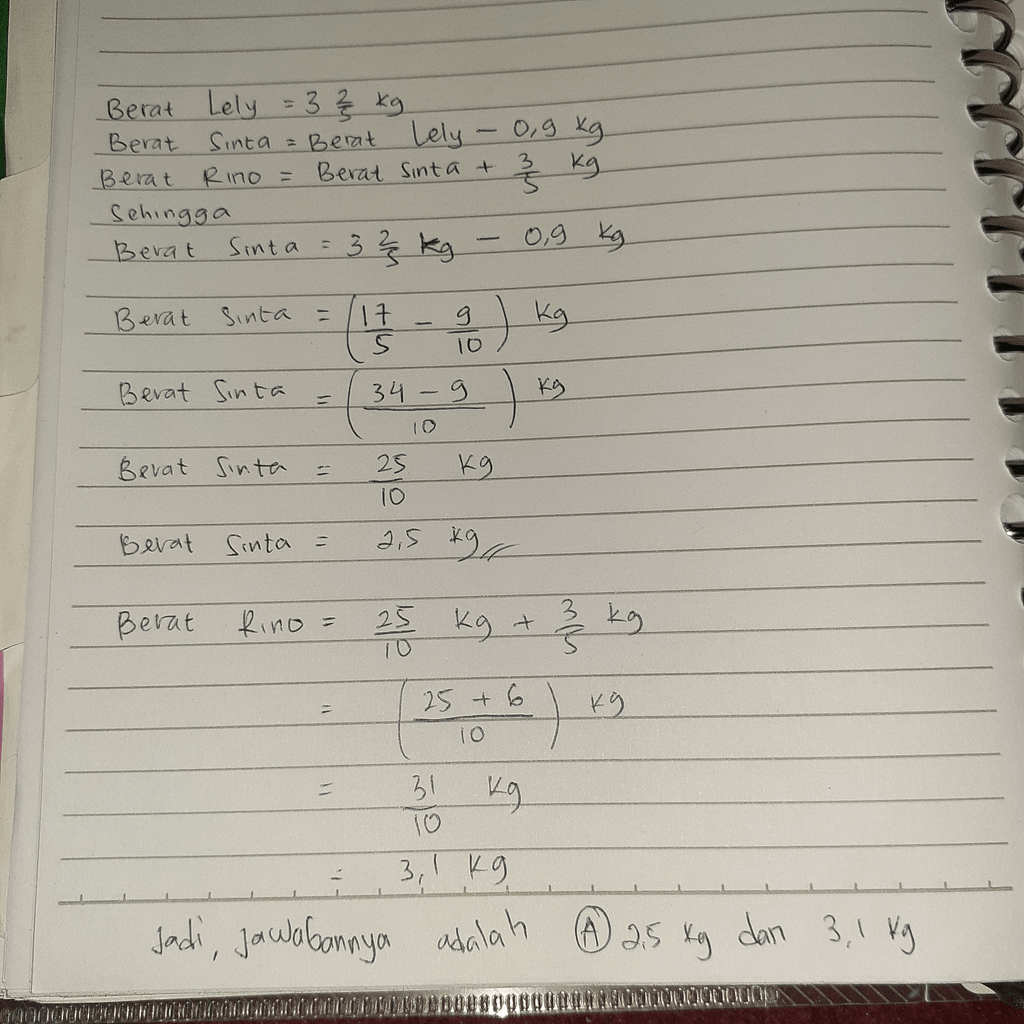 Berat Lely = 3 2/5 kg
Berat Sinta = Berat Lely - 0,9 kg
Berat Rino = Berat Sinta + 3/5 kg
Sehingga
Berat Sinta = 3 2/5 kg - 0,9 kg
Berat Sinta = (17/5 - 9/10) kg
Berat Sinta = ((34 - 9)/10) kg
Berat Sinta = 25/10 kg
Berat Sinta = 2,5 kg
Berat Rino = 25/10 kg + 3/5 kg
= ((25 + 6)/10) kg
= 31/10 kg
= 3,1 kg
Jadi, jawabannya adalah (A) 2,5 kg dan 3,1 kg